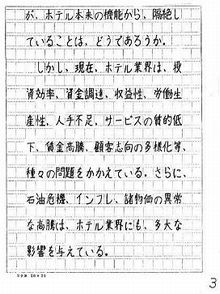 が、ホテル本来の機能から、隔絶し
ていることは、どうであろうか。
しかし、現在、ホテル業界は、投
資効率、資金調達、収益性、労働生
産性、人手不足、サービスの質的低
下、賃金高騰、顧客志向の多様化等、
種々の問題をかかえている。さらに、
石油危機、インフレ、諸物価の異常
な高騰は、ホテル業界にも、多大な
影響を与えている。
3